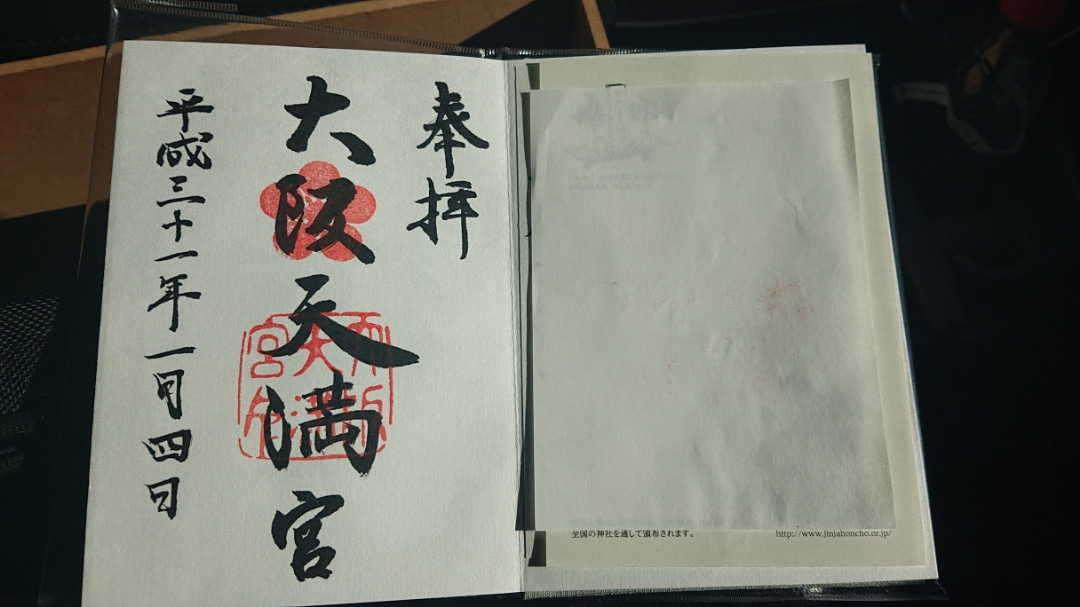 奉拝
大阪天満宮
平成三十一年一月四日
全国の神社を通して頒布されます。
http://www.jinjahoncho.or.jp/